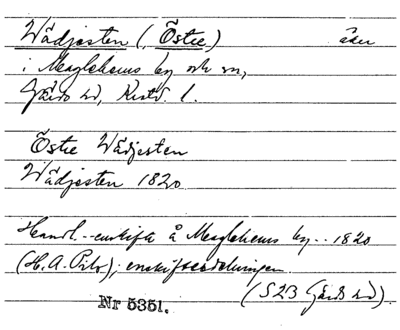 Wådjesten (Östre) åker
i Maglehems by och sn,
Gärds hd, Krist. l.
Östre Wådjesten
Wådjesten 1820
Handl. - enskifte å Maglehems by - 1820
(H. A. ), enskiftesdelningen
Nr 5351. (S23 Gärds hd)